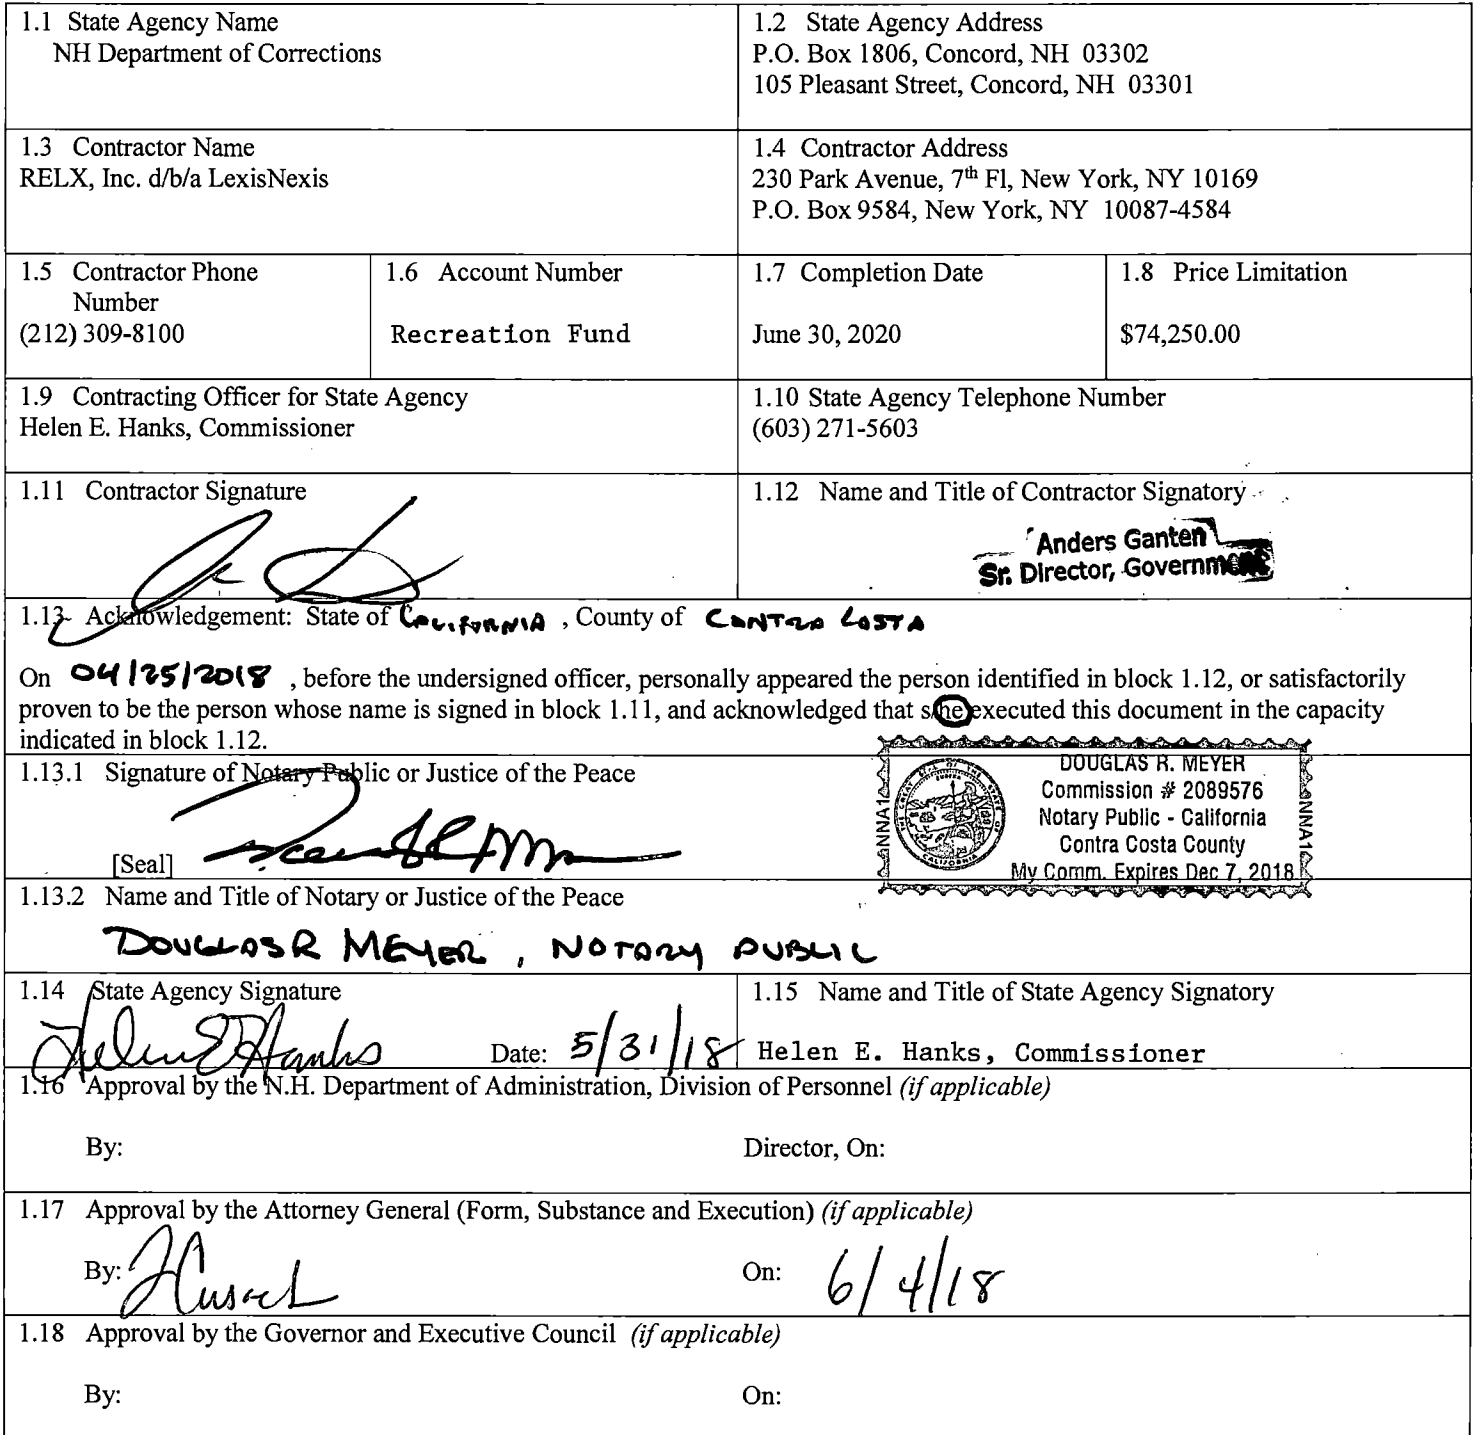 1.1 State Agency Name
NH Department of Corrections
1.2 State Agency Address
P.O. Box 1806, Concord, NH 03302
105 Pleasant Street, Concord, NH 03301
1.3 Contractor Name
RELX, Inc. d/b/a LexisNexis
1.4 Contractor Address
230 Park Avenue, 7th Fl, New York, NY 10169
P.O. Box 9584, New York, NY 10087-4584
1.5 Contractor Phone
Number
(212) 309-8100
1.6 Account Number
Recreation Fund
1.7 Completion Date
June 30, 2020
1.8 Price Limitation
$74,250.00
1.9 Contracting Officer for State Agency
Helen E. Hanks, Commissioner
1.10 State Agency Telephone Number
(603) 271-5603
1.11 Contractor Signature
1.12 Name and Title of Contractor Signatory
Anders Ganten
Sr. Director, Government
1.13 Acknowledgement: State of CALIFORNIA , County of CONTRA COSTA
On 04/25/2018 , before the undersigned officer, personally appeared the person identified in block 1.12, or satisfactorily
proven to be the person whose name is signed in block 1.11, and acknowledged that s/he executed this document in the capacity
indicated in block 1.12.
1.13.1 Signature of Notary Public or Justice of the Peace
[Seal]
DOUGLAS R. MEYER
Commission # 2089576
Notary Public - California
Contra Costa County
My Comm. Expires Dec 7, 2018
NNA1
NNA1
1.13.2 Name and Title of Notary or Justice of the Peace
DOUGLAS R MEYER , NOTARY PUBLIC
1.14 State Agency Signature
Helen E Hanks Date: 5/31/18
1.15 Name and Title of State Agency Signatory
Helen E. Hanks, Commissioner
1.16 Approval by the N.H. Department of Administration, Division of Personnel (if applicable)
By: Director, On:
1.17 Approval by the Attorney General (Form, Substance and Execution) (if applicable)
By: On: 6/4/18
1.18 Approval by the Governor and Executive Council (if applicable)
By: On: